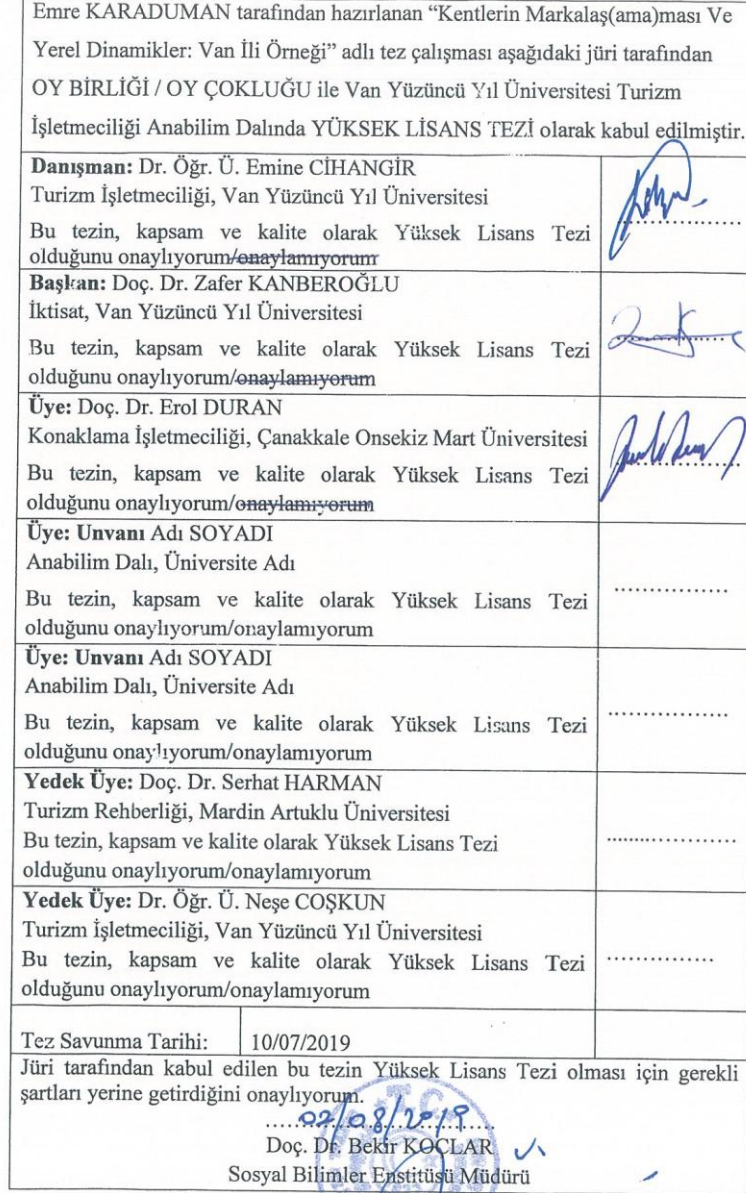 Emre KARADUMAN tarafından hazırlanan “Kentlerin Markalaş(ama)ması Ve
Yerel Dinamikler: Van İli Örneği” adlı tez çalışması aşağıdaki jüri tarafından
OY BİRLİĞİ / OY ÇOKLUĞU ile Van Yüzüncü Yıl Üniversitesi Turizm
İşletmeciliği Anabilim Dalında YÜKSEK LİSANS TEZİ olarak kabul edilmiştir.
Danışman: Dr. Öğr. Ü. Emine CİHANGİR
Turizm İşletmeciliği, Van Yüzüncü Yıl Üniversitesi
Bu tezin, kapsam ve kalite olarak Yüksek Lisans Tezi
olduğunu onaylıyorum/onaylamıyorum
....................
Başkan: Doç. Dr. Zafer KANBEROĞLU
İktisat, Van Yüzüncü Yıl Üniversitesi
Bu tezin, kapsam ve kalite olarak Yüksek Lisans Tezi
olduğunu onaylıyorum/onaylamıyorum
....................
Üye: Doç. Dr. Erol DURAN
Konaklama İşletmeciliği, Çanakkale Onsekiz Mart Üniversitesi
Bu tezin, kapsam ve kalite olarak Yüksek Lisans Tezi
olduğunu onaylıyorum/onaylamıyorum
....................
Üye: Unvanı Adı SOYADI
Anabilim Dalı, Üniversite Adı
Bu tezin, kapsam ve kalite olarak Yüksek Lisans Tezi
olduğunu onaylıyorum/onaylamıyorum
................
Üye: Unvanı Adı SOYADI
Anabilim Dalı, Üniversite Adı
Bu tezin, kapsam ve kalite olarak Yüksek Lisans Tezi
olduğunu onaylıyorum/onaylamıyorum
.................
Yedek Üye: Doç. Dr. Serhat HARMAN
Turizm Rehberliği, Mardin Artuklu Üniversitesi
Bu tezin, kapsam ve kalite olarak Yüksek Lisans Tezi
olduğunu onaylıyorum/onaylamıyorum
....................
Yedek Üye: Dr. Öğr. Ü. Neşe COŞKUN
Turizm İşletmeciliği, Van Yüzüncü Yıl Üniversitesi
Bu tezin, kapsam ve kalite olarak Yüksek Lisans Tezi
olduğunu onaylıyorum/onaylamıyorum
...............
Tez Savunma Tarihi: 10/07/2019
Jüri tarafından kabul edilen bu tezin Yüksek Lisans Tezi olması için gerekli
şartları yerine getirdiğini onaylıyorum.
T.C.
02/08/2019
Doç. Dr. Bekir KOÇLAR
Sosyal Bilimler Enstitüsü Müdürü